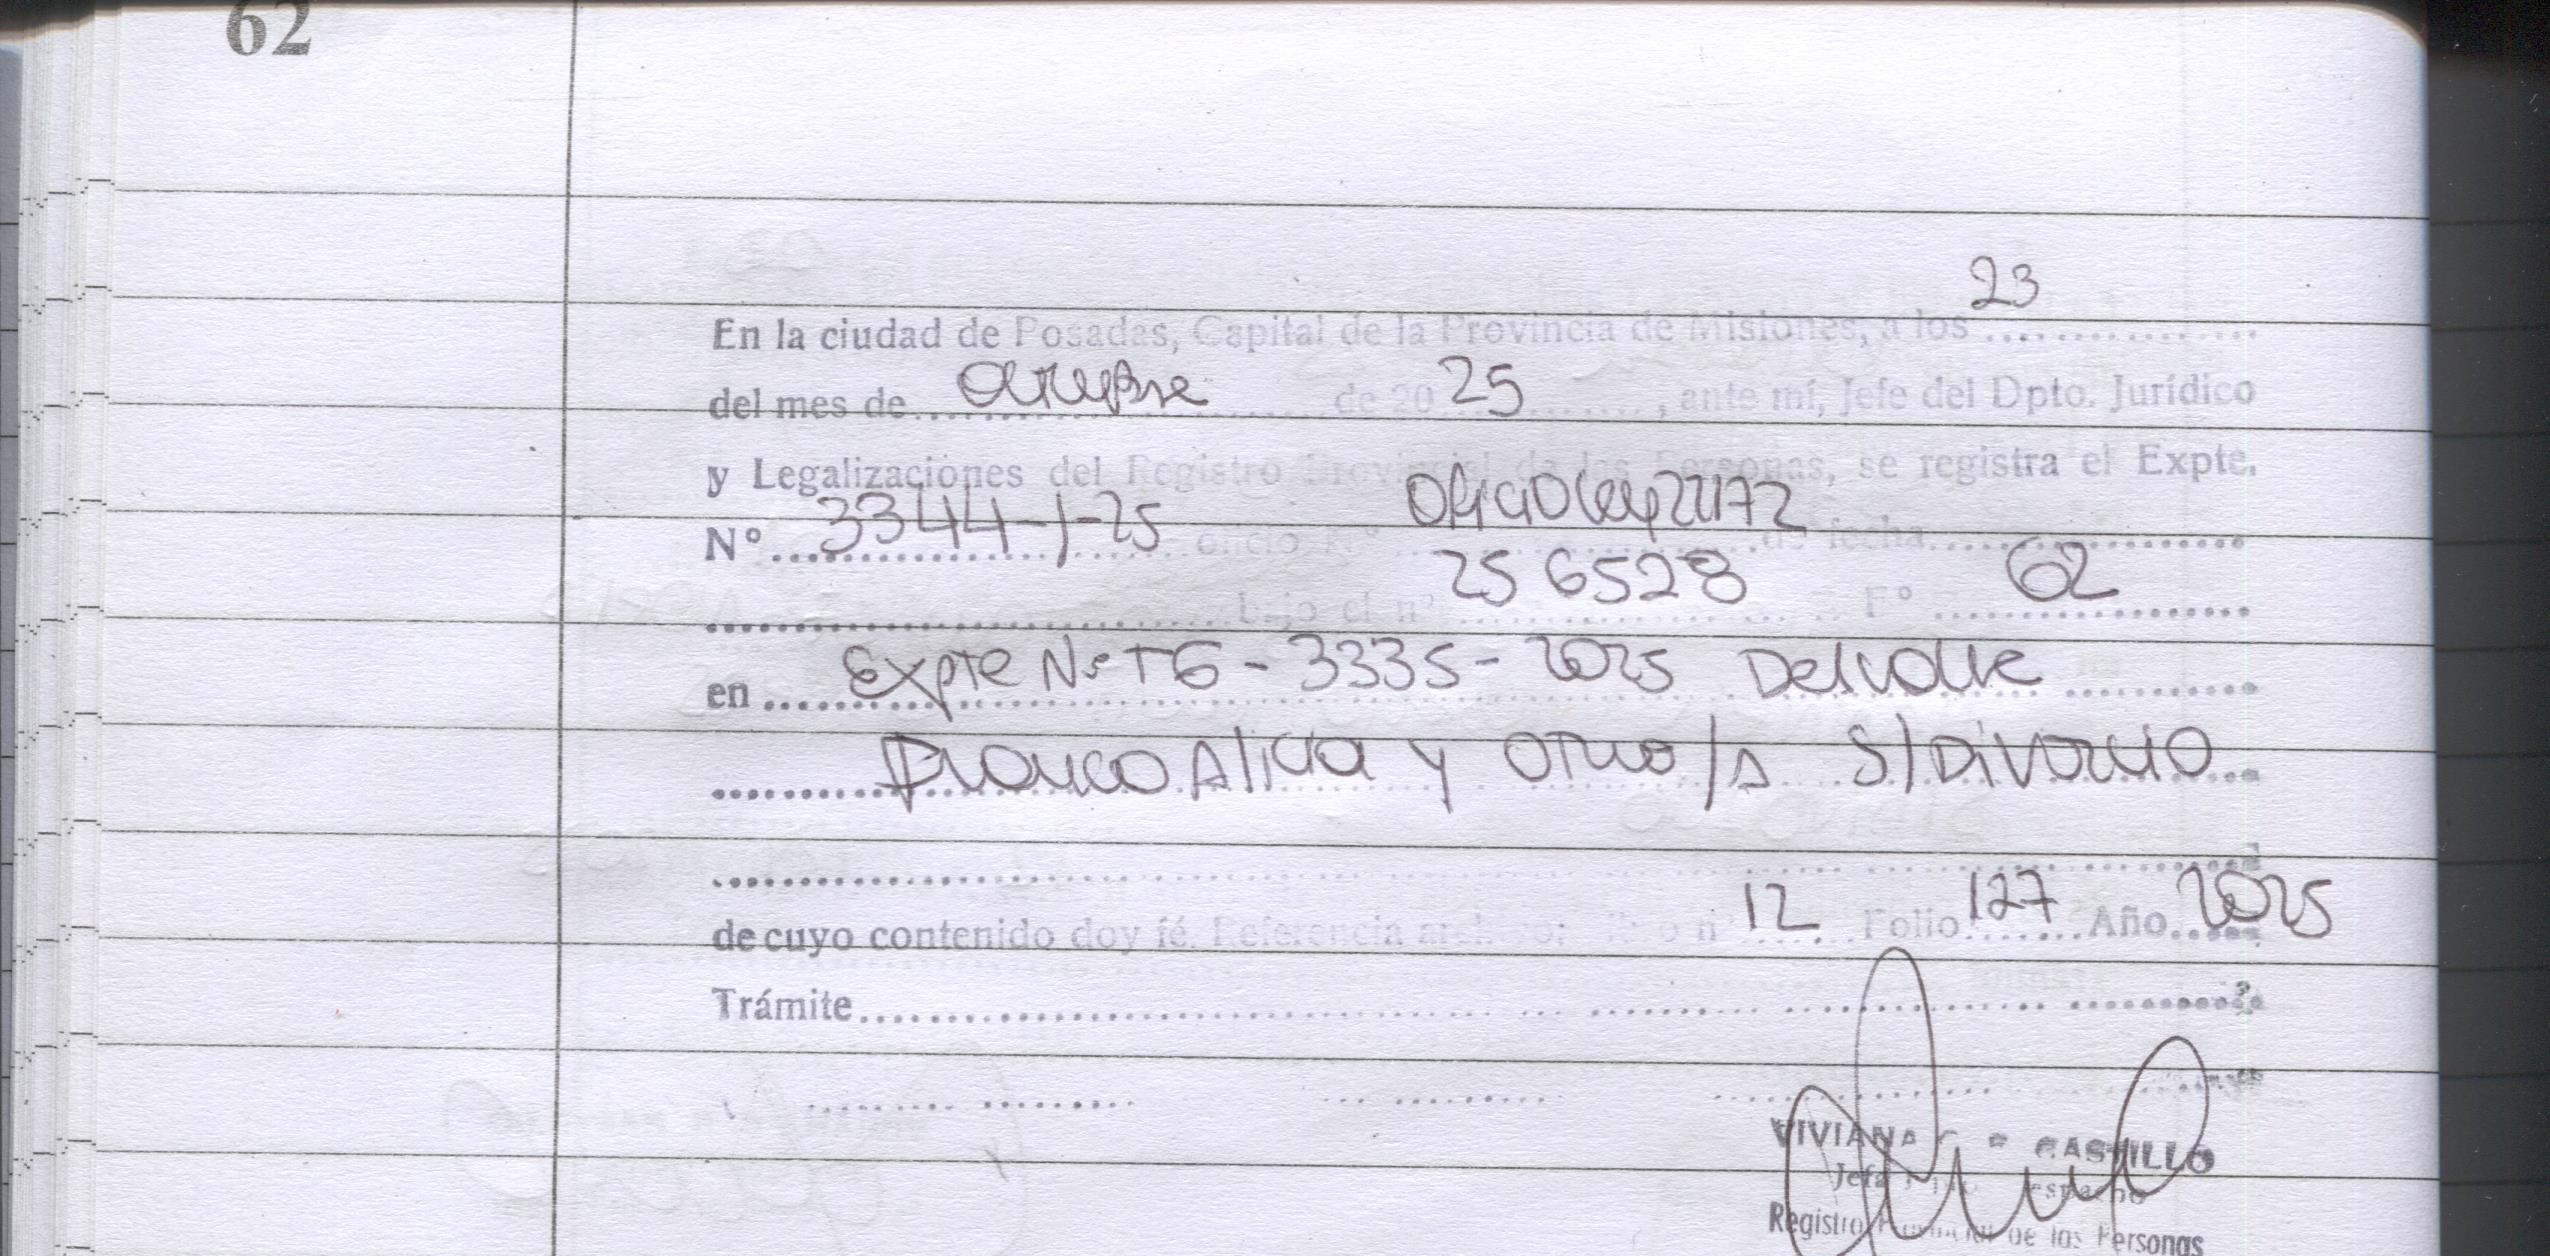 62
23
En la ciudad de Posadas, Capital de la Provincia de Misiones, a los ................
del mes de octubre de 20 25, ante mí, Jefe del Dpto. Jurídico
y Legalizaciones del Registro Provincial de las Personas, se registra el Expte.
N° 3344-J-25 oficio N° Oficio Ley 22172 de fecha
bajo el n° 256528 F° 62
en Expte N° TG - 3335 - 2025 Delvalle
Franco Alicia y otro/s S/Divorcio
de cuyo contenido doy fé. Referencia archivo: n° 12 Folio 127 Año 2025
Trámite
VIVIANA CASTILLO
Jefa
Registro Provincial de las Personas